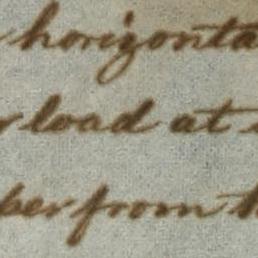 horizonta
load at
per from